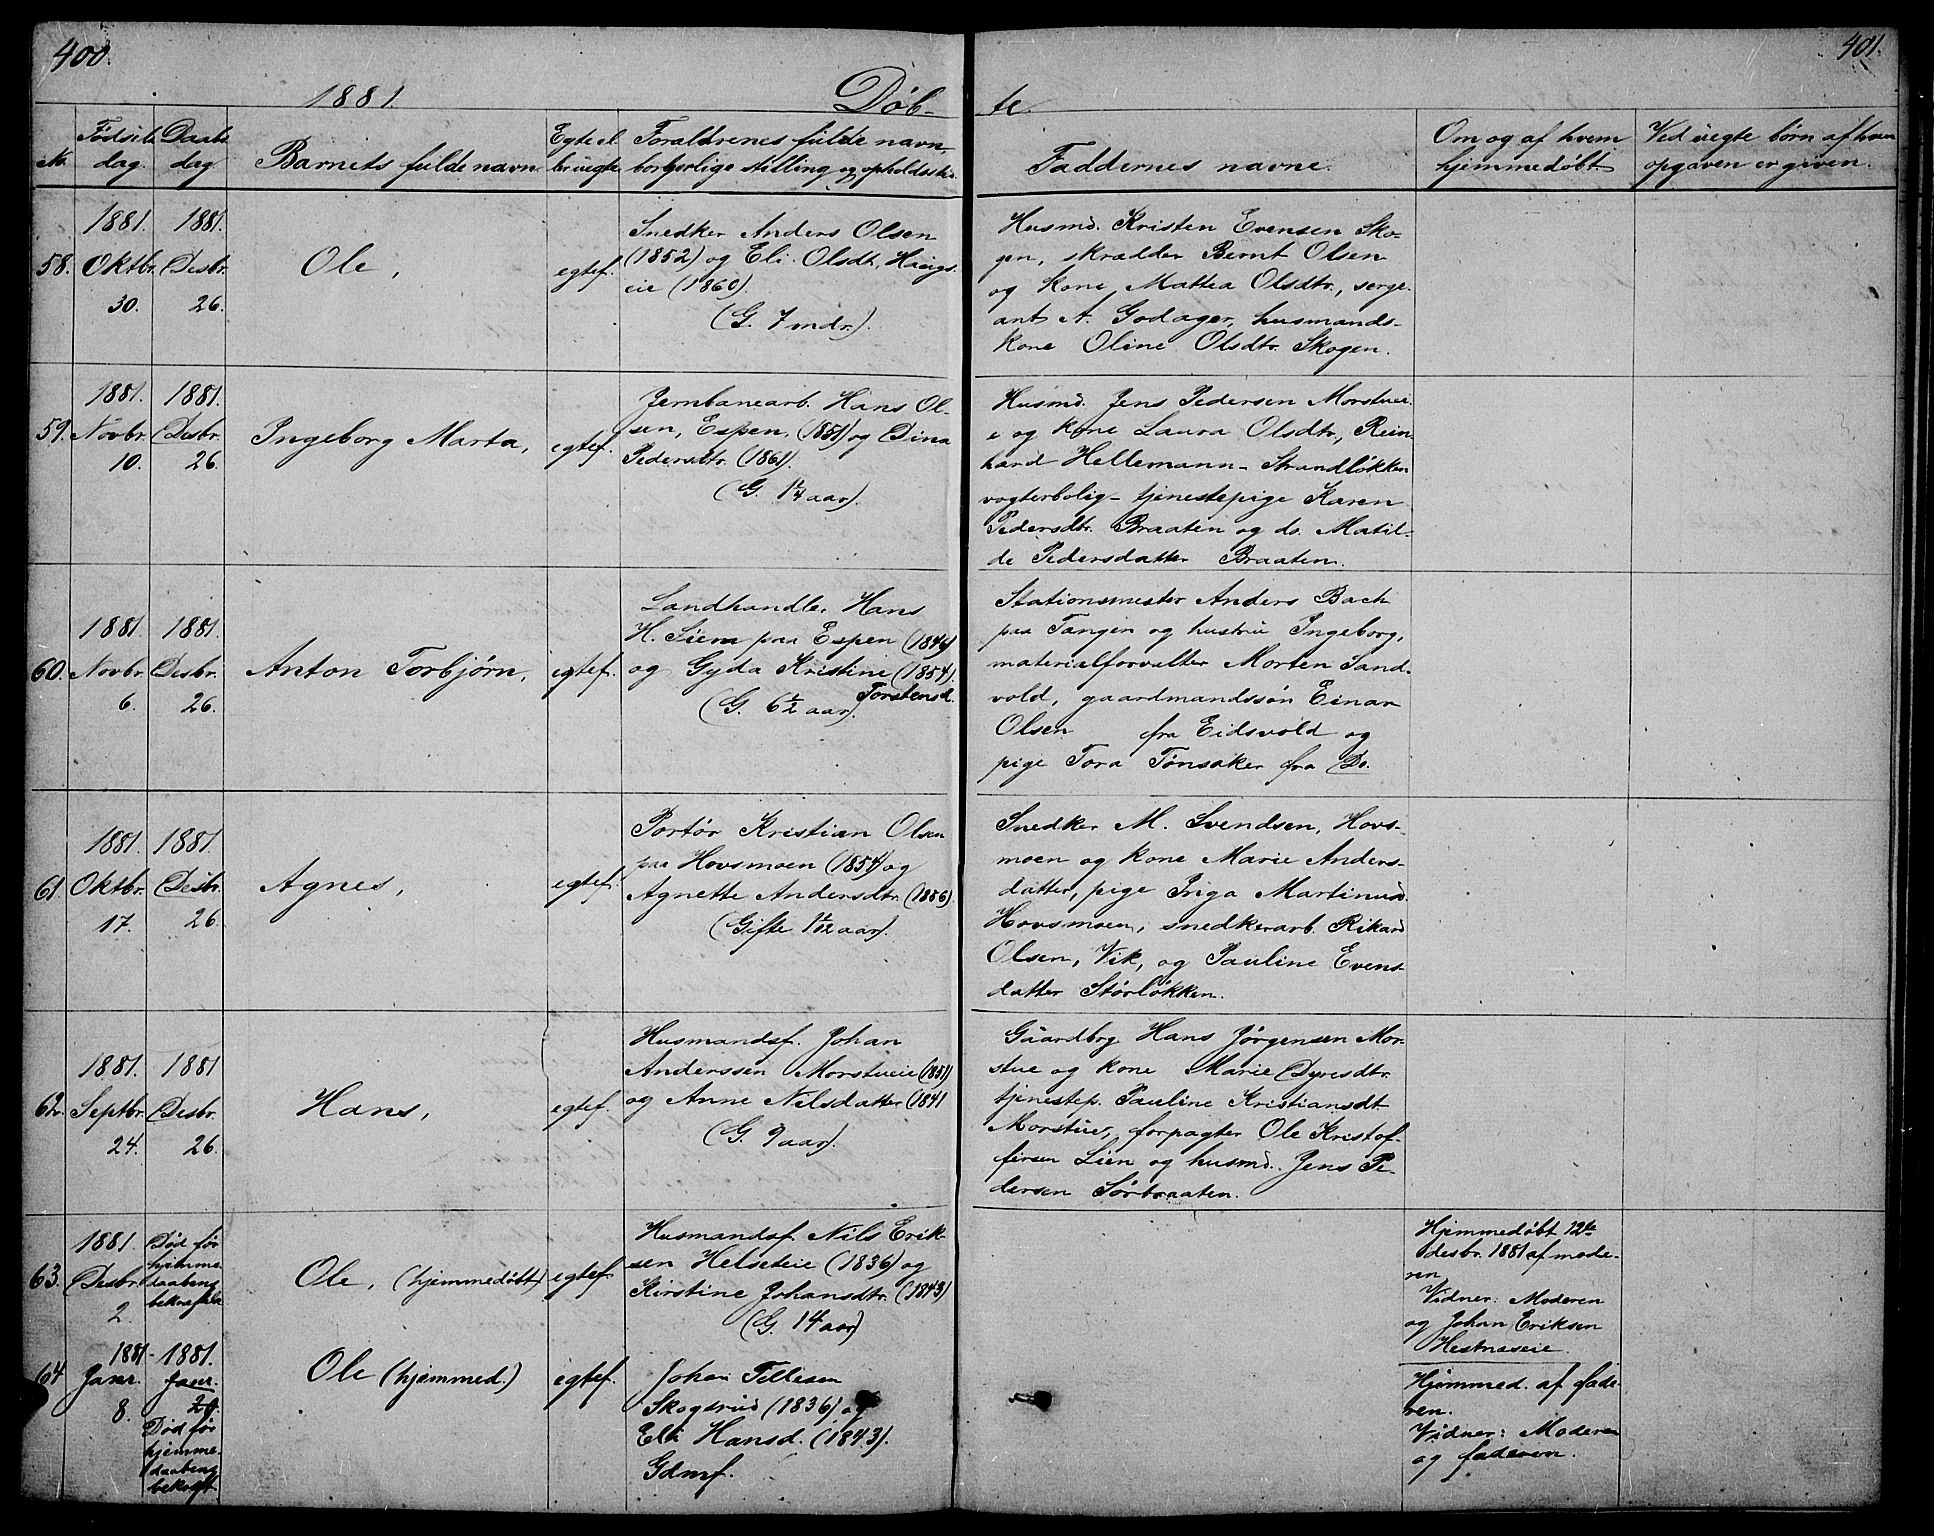 400.
401.
1881.
Døb-
te.
No
Fødsels
dag.
Daabs
dag.
Barnets fulde navn.
Egte el.
uegte.
Foraldrenes fulde navn,
borgerlige stilling og opholdsste
Faddernes navne.
Om og af hvem
hjemmedøbt.
Ved uegte børn af hvem
opgaven er given.
58.
1881.
Oktbr.
30.
1881.
Desbr.
26.
Ole,
egtef.
Snedker Anders Olsen
(1852) og Eli Olsdtr,
eie (1860).
(G. 7 mdr.).
Husmd. Kristen Evensen Sko-
gen, skrædder Bernt Olsen
og kone Mattea Olsdtr., serge-
ant A. Godager, husmands-
kone Oline Olsdtr. Skogen.
59.
1881.
Novbr.
10.
1881.
Desbr.
26.
Ingeborg Marta,
egtef.
Jernbanearb. Hans Ol-
sen, Espen, (1851) og Dina
Pedersdtr. (1861).
(G. 1¼ aar).
Husmd. Jens Pedersen Morstue-
e og kone Laura Olsdtr., Rein-
hard Hellemann - Strandløkken
vogterbolig - tjenestepige Karen
Pedersdtr. Braaten og do. Matil-
de Pedersdatter Braaten.
60.
1881.
Novbr.
6.
1881.
Desbr.
26.
Anton Torbjørn,
egtef.
Landhandler Hans
H. Siem paa Espen (1846)
og Gyda Kristine (1854).
Torstensd.
(G. 6½ aar).
Stationsmester Anders Bach
paa Tangen og hustru Ingeborg,
materialforvalter Morten Sand-
vold, gaardmandssøn Einar
Olsen fra Eidsvold og
pige Tora Tønsaker fra Do.
61.
1881.
Oktbr.
17.
1881.
Desbr.
26.
Agnes,
egtef.
Portør Kristian Olsen
paa Hovsmoen (1854) og
Agnette Andersdtr. (1856).
(Gifte 1 1/12 aar).
Snedker M. Svendsen, Hovs-
moen og kone Marie Anders-
datter, pige Inga Martinusd.
Hovsmoen, snedkerarb. Rikard
Olsen, Vik, og Pauline Evens-
datter Størløkken.
62.
1881.
Septbr.
24.
1881
Desbr.
26.
Hans,
egtef.
Husmandsf. Johan
Anderssen Morstueie (1851)
og Anne Nilsdatter (1841
(G. 9 aar).
Gaardbrg Hans Jørgensen Mor-
stue og kone Marie Dyresdtr.
tjenestep. Pauline Kristiansdt
Morstue, forpagter Ole Kristof-
fersen Lien og husmd. Jens Pe-
dersen Sørbraaten.
63.
1881.
Desbr.
2.
Død før
hjemme
daabens
bekræftelse
Ole, (hjemmedøbt)
egtef.
Husmandsf. Nils Erik-
sen Helseteie (1836) og
Kirstine Johansdtr. (1843)
(G. 14 aar)
Hjemmedøbt 12te
desbr. 1881 af mode-
ren
Vidner: Moderen
og Johan Eriksen
Hestnæseie.
64
1881
Janr.
8.
1881.
Janr.
Død før
hjemme-
daabens
bekræft.
Ole (hjemmed.)
egtef.
Johan Tollesen
Skogsrud (1836) og
Eli Hansd. (1843).
Gdmf.
Hjemmed. af fade-
ren.
Vidner: Moderen
og faderen.